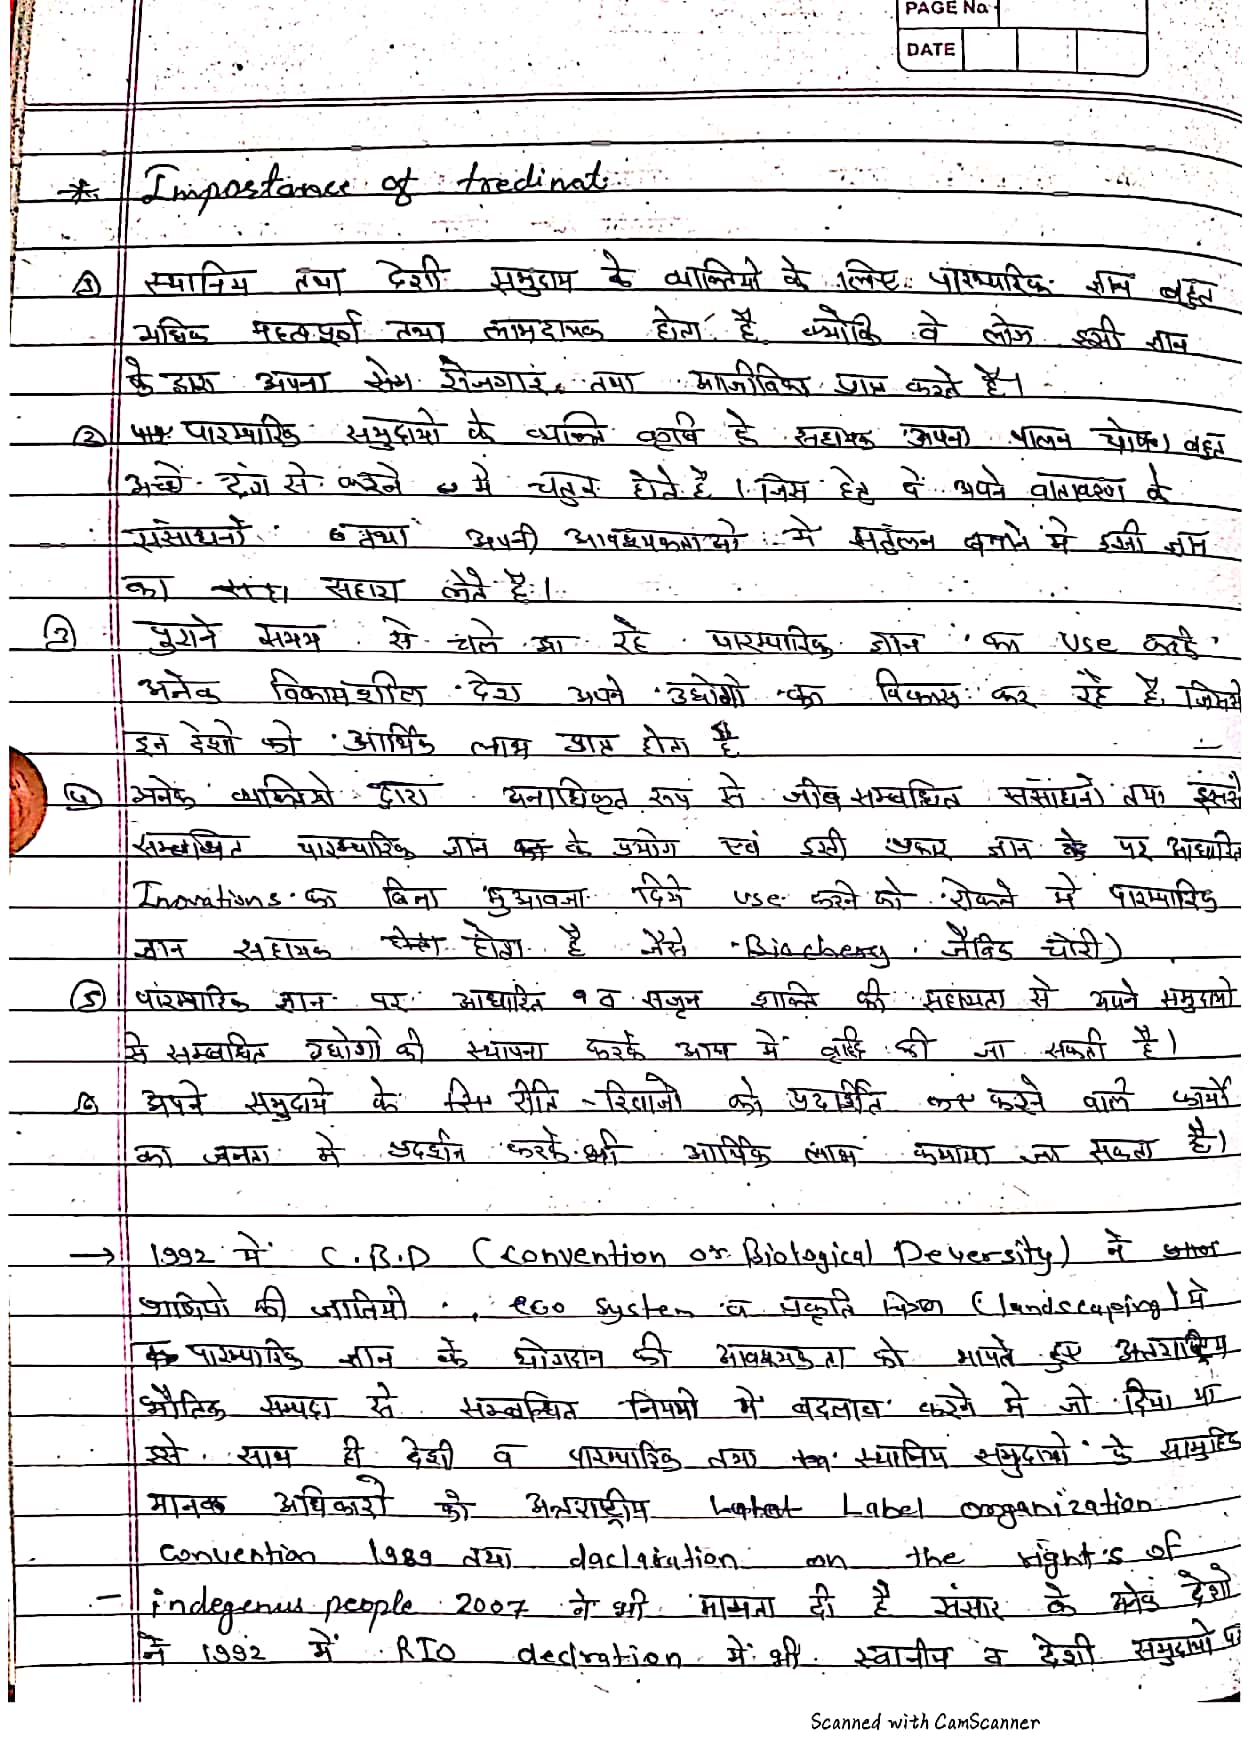 PAGE No.
DATE
* Impostance of tredinat
① स्थानिय तथा देशी समुदाय के व्यक्तियो के लिए पारम्पारिक ज्ञान बहुत
अधिक महत्वपूर्ण तथा लाभदायक होता है क्योकि वे लोग इसी ज्ञान
के द्वारा अपना रोजगार तथा आजीविका प्राप्त करते है।
② पारम्पारिक समुदायो के व्यक्ति कृषि के सहायक अपना पालन बहुत
अच्छे ढ़ंग से करने मे चतुर होते है। जिस हेतु वे अपने वातावरण के
संसाधनों तथा अपनी आवश्यकताओ मे सतुंलन बनाने मे इसी ज्ञान
का सहारा लेते है।
③ पुराने समय से चले आ रहे पारम्पारिक ज्ञान का use करके
अनेक विकासशील देश अपने उधोगो का विकास कर रहे है जिससे
इन देशो को आर्थिक लाभ प्राप्त होता है
④ अनेक व्यक्तियो द्वारा अनाधिकृत रूप से जीव सम्बधित संसाधनो तथा इससे
सम्बन्धित पारम्पारिक ज्ञान के प्रयोग एवं इसी प्रकार ज्ञान के पर आधारित
Inovations का बिना मुआवजा दिये use करने को रोकने मे पारम्पारिक
ज्ञान सहायक होता है जैसे जैविक चोरी)
⑤ पारम्पारिक ज्ञान पर आधारित व सजृन शक्ति की सहायता से अपने समुदायो
से सम्बधित उधोगो की स्थापना करके आय में वृद्धि की जा सकती है।
⑥ अपने समुदाये के रीति - रिवाजो को प्रदर्शित करने वाले कार्यो
का जनता मे प्रदर्शन करके भी आर्थिक लाभ कमाया जा सकता है।
→ 1992 में C.B.D (convention on Biological Deversity) ने
प्राणियो की जातियो, eco system व प्रकृति चित्रण (landscaping) मे
पारम्पारिक ज्ञान के योगदान की आवश्यकता को भापते हुए अन्तराष्ट्रिय
भौतिक सम्पदा से सम्बन्धित नियमो मे बदलाव करने मे जो दिया था
इसे साथ ही देशी व पारम्पारिक तथा स्थानिय समुदायो के सामुहिक
मानक अधिकारो को अन्तराष्ट्रीय Label organization
convention 1989 तथा daclaration on the right's of
- indegenus people 2007 ने भी मान्यता दी है संसार के अनेक देशो
ने 1992 में RIO declration में भी स्थानीय व देशी समुदायो पर
Scanned with CamScanner